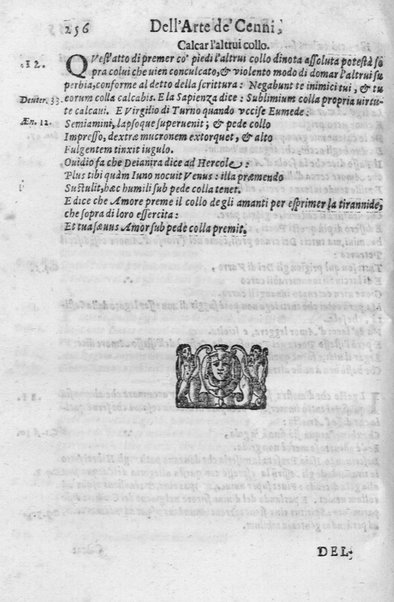 256 Dell'Arte de' Cenni,
Calcar l'altrui collo.
§ 2. QVest'atto di premer co' piedi l'altrui collo dinota assoluta potestà so
pra colui che uien conculcato, & violento modo di domar l'altrui su
perbia, conforme al detto della scrittura: Negabunt te inimici tui, & tu
Deuter. 33. eorum colla calcabis. E la Sapienza dice: Sublimium colla propria uirtu-
te calcaui. E Virgilio di Turno quando vccise Eumede:
Æn. 12. Semianimi, lapsoque superuenit; & pede collo
Impresso, dextræ mucronem extorquet, & alto
Fulgentem tinxit iugulo.
Ouidio fa che Deianira dice ad Hercole:
Plus tibi quàm Iuno nocuit Venus: illa præmendo
Sustulit, hæc humili sub pede colla tenet.
E dice che Amore preme il collo degli amanti per esprimer la tirannide,
che sopra di loro essercita:
Et tua sæuus Amor sub pede colla premit.
DEL-